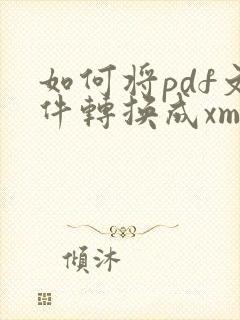 如何將pdf文
件轉換成xm
傾沐